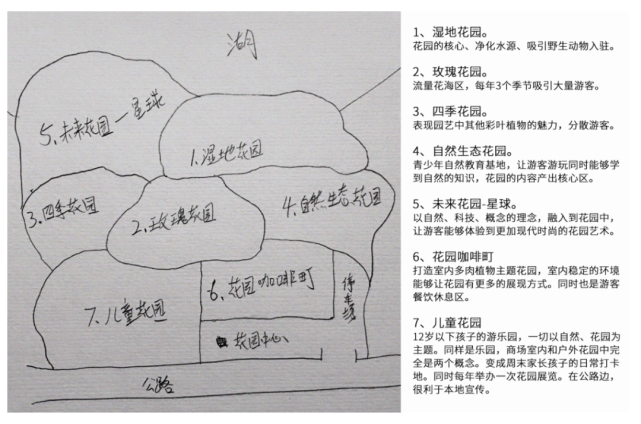 湖
5、未来花园-星球
1.湿地花园
3.四季花园
2.玫瑰花园
4.自然生态花园
7.儿童花园
6.花园咖啡町
停车场
花园中心
公路
1、湿地花园。
花园的核心、净化水源、吸引野生动物入驻。
2、玫瑰花园。
流量花海区，每年3个季节吸引大量游客。
3、四季花园。
表现园艺中其他彩叶植物的魅力，分散游客。
4、自然生态花园。
青少年自然教育基地，让游客游玩同时能够学
到自然的知识，花园的内容产出核心区。
5、未来花园-星球。
以自然、科技、概念的理念，融入到花园中，
让游客能够体验到更加现代时尚的花园艺术。
6、花园咖啡町
打造室内多肉植物主题花园，室内稳定的环境
能够让花园有更多的展现方式。同时也是游客
餐饮休息区。
7、儿童花园
12岁以下孩子的游乐园，一切以自然、花园为
主题。同样是乐园，商场室内和户外花园中完
全是两个概念。变成周末家长孩子的日常打卡
地。同时每年举办一次花园展览。在公路边，
很利于本地宣传。